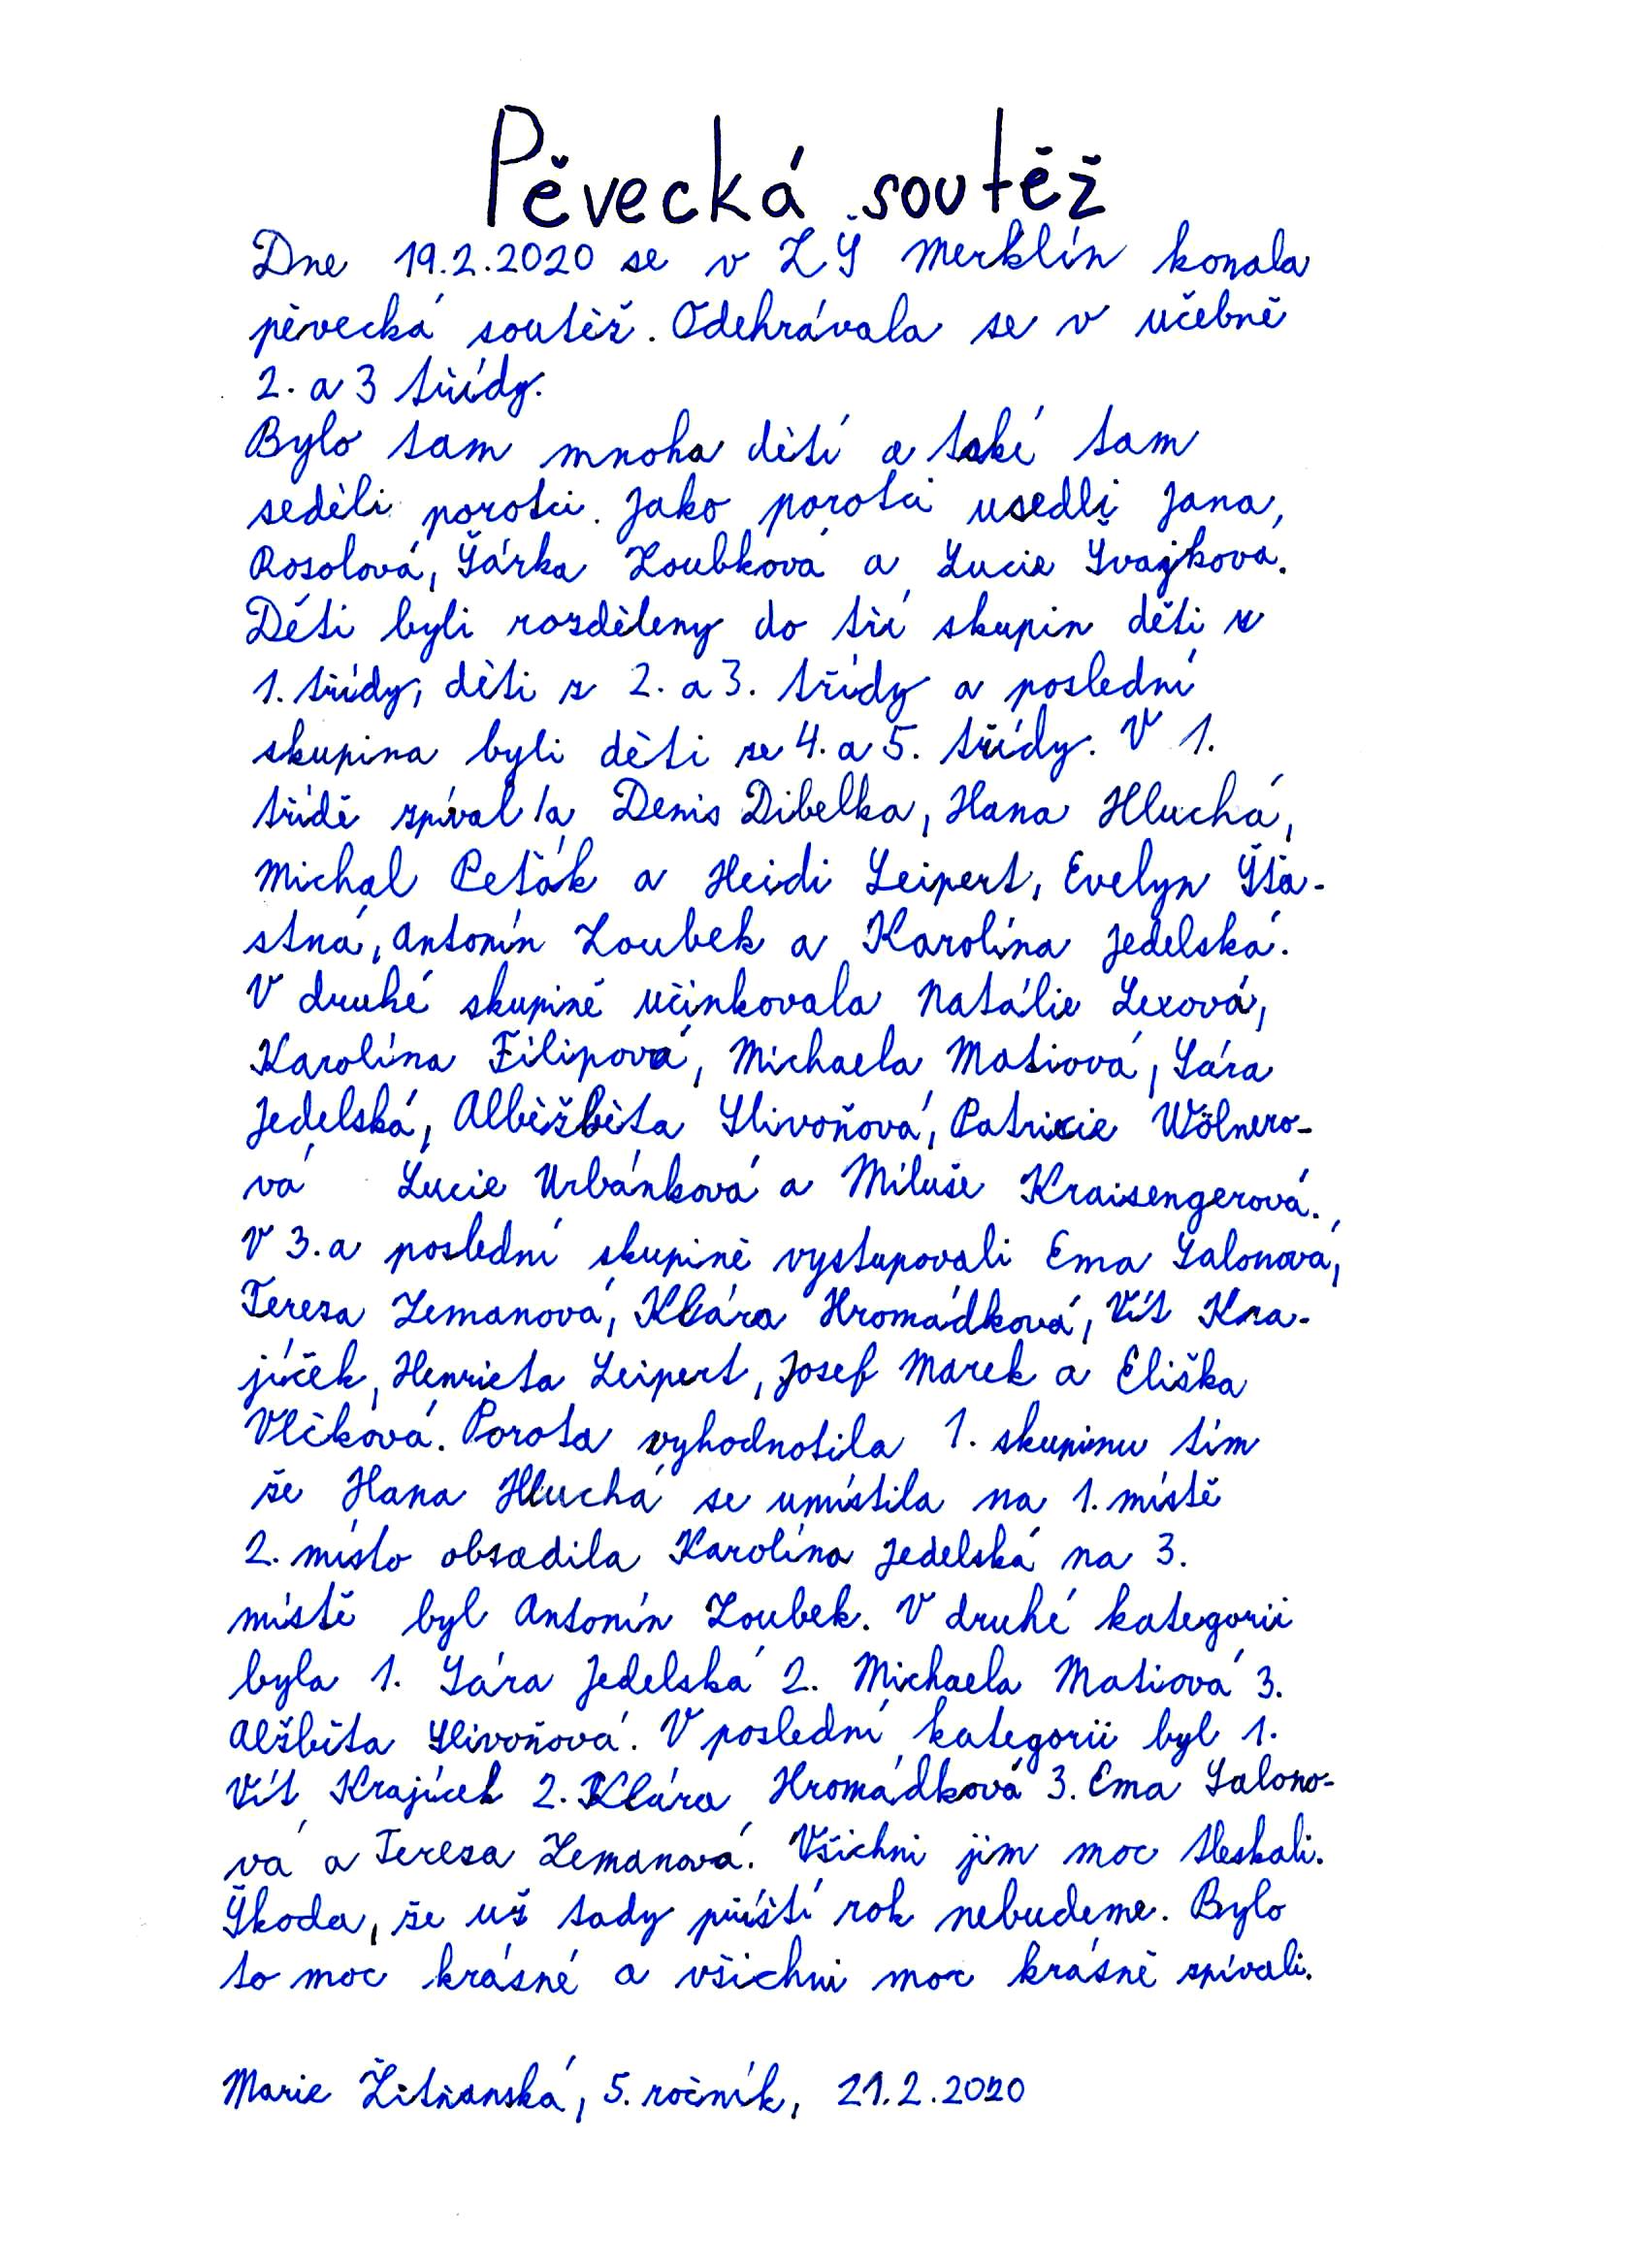 Pěvecká soutěž
Dne 19.2.2020 se v ZŠ Merklín konala
pěvecká soutěž. Odehrávala se v učebně
2. a 3 třídy.
Bylo tam mnoha dětí a také tam
seděli porotci. Jako porotci usedli Jana,
Rosolová, Šárka Zoubková a Lucie Švajková.
Děti byli rozděleny do tří skupin děti z
1. třídy, děti z 2. a 3. třídy a poslední
skupina byli děti ze 4. a 5. třídy. V 1.
třídě zpíval/a Denis Dibelka, Hana Hluchá,
Michal Peták a Heidi Leipert, Evelyn Šťa-
stná, Antonín Zoubek a Karolína Jedelská.
V druhé skupině učinkovala Natálie Lexová,
Karolína Filipová, Michaela Matiová, Sára
Jedelská, Alběžběta Slivoňová, Patricie Wölnero-
vá Lucie Urbánková a Miluše Kraisengerová.
V 3. a poslední skupině vystupovali Ema Salonová,
Tereza Zemanová, Klára Hromádková, Vít Kra-
jíček, Henrieta Leipert, Josef Marek a Eliška
Vlčková. Porota vyhodnotila 1. skupinu tím
že Hana Hluchá se umístila na 1. místě
2. místo obsadila Karolína Jedelská na 3.
místě byl Antonín Zoubek. V druhé kategorii
byla 1. Sára Jedelská 2. Michaela Matiová 3.
Alžběta Slivoňová. V poslední kategorii byl 1.
Vít Krajícek 2. Klára Hromádková 3. Ema Salono-
vá a Tereza Zemanová. Všichni jim moc tleskali.
Škoda, že už tady příští rok nebudeme. Bylo
to moc krásné a všichni moc krásně zpívali.
Marie Žitňanská, 5. ročník, 21.2.2020